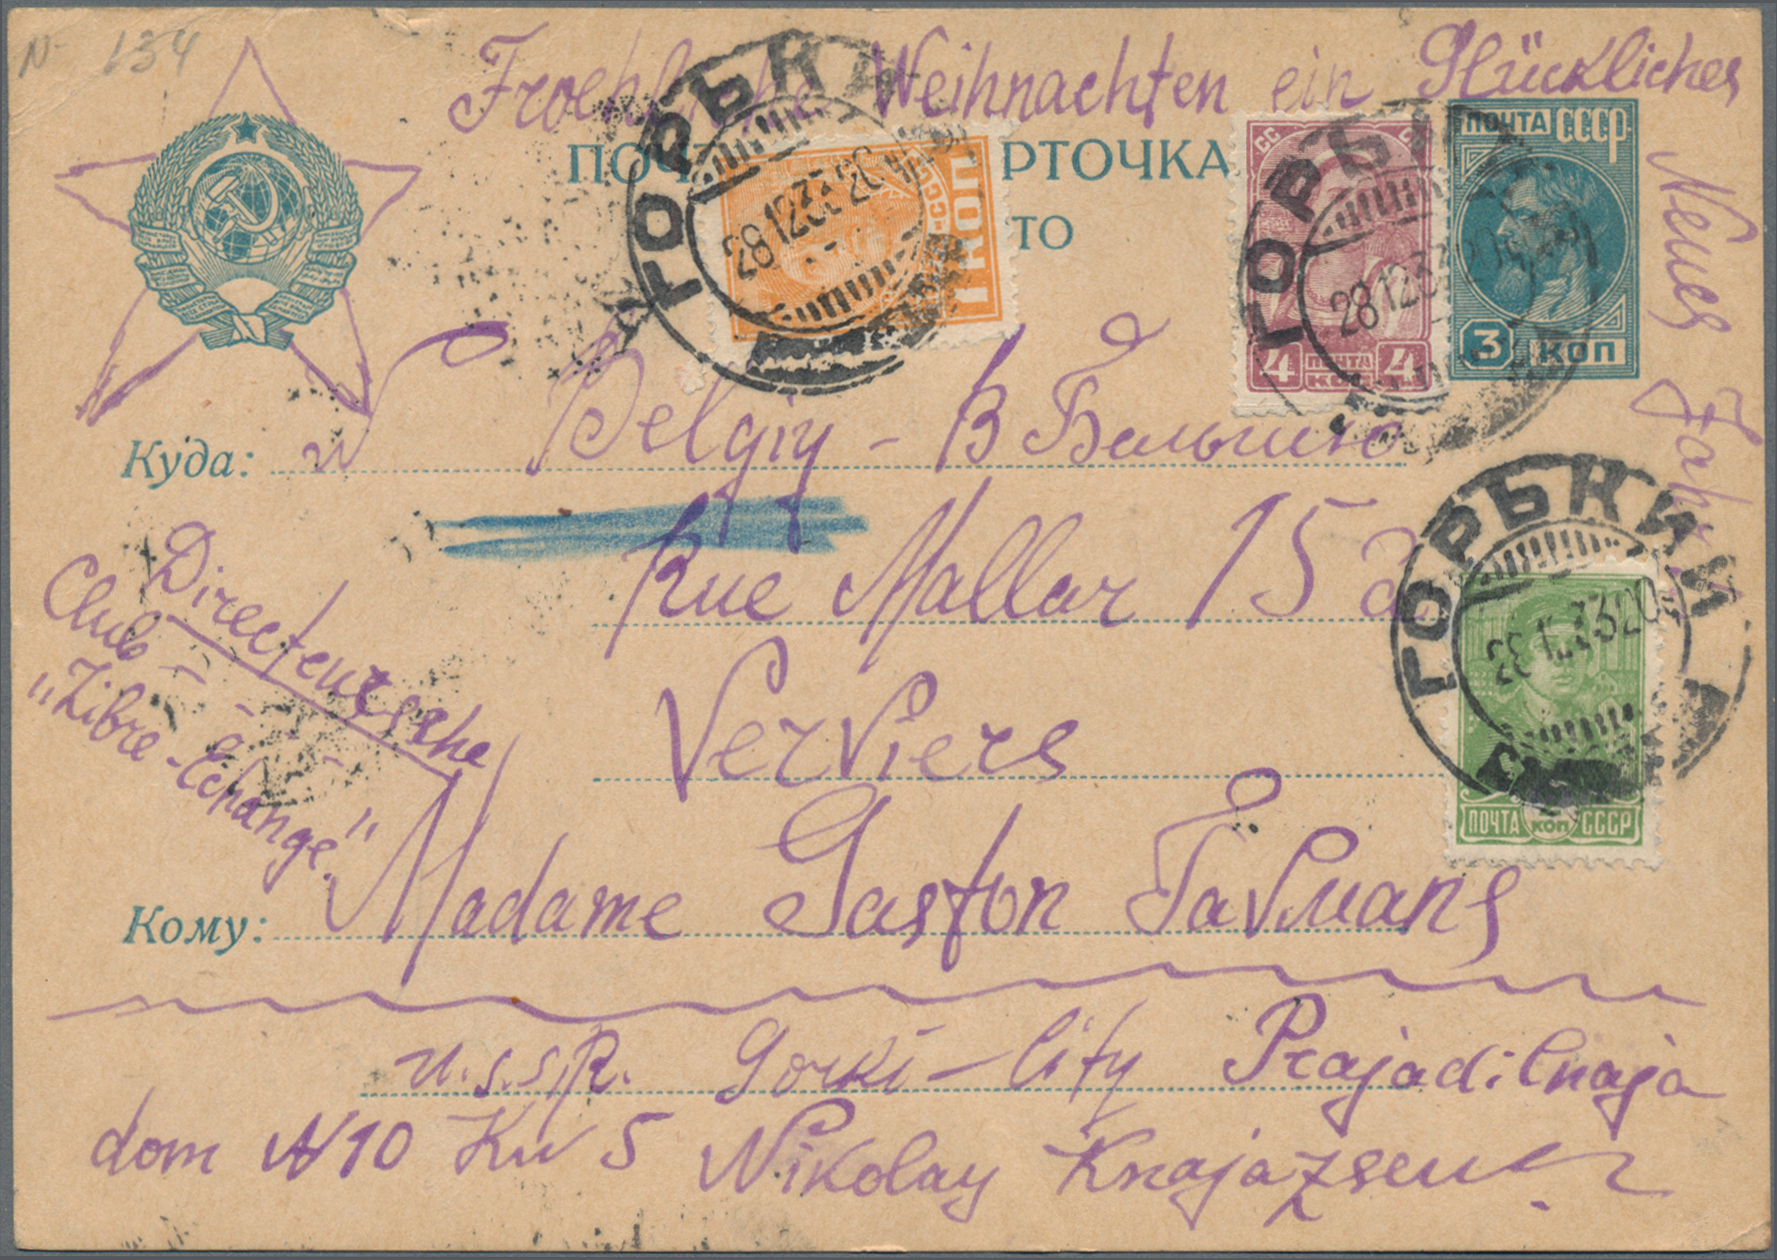 N- 134
Froehliche Weihnachten ein Glückliches
Neues Jahr
ПОЧТА СССР
3 КОП
ПОЧ РТОЧКА
ТО
1 КОП
СССР
4 ПОЧТА 4
КОП
ГОРЬКИ
28 12 33 20
ГОРЬК
28 12 33 20
ГОРЬКИЙ
28 12 33 20
ПОЧТА КОП СССР
Куда: Belgiy - в Бельгию
Rue Mallar 15 a
Verviers
Directeursche
Club
"Libre-Echange."
Кому: Madame Gaston Tavmans
U.S.S.R. Gorki-City Prajadilnaja
dom N10 Kw 5 Nikolay